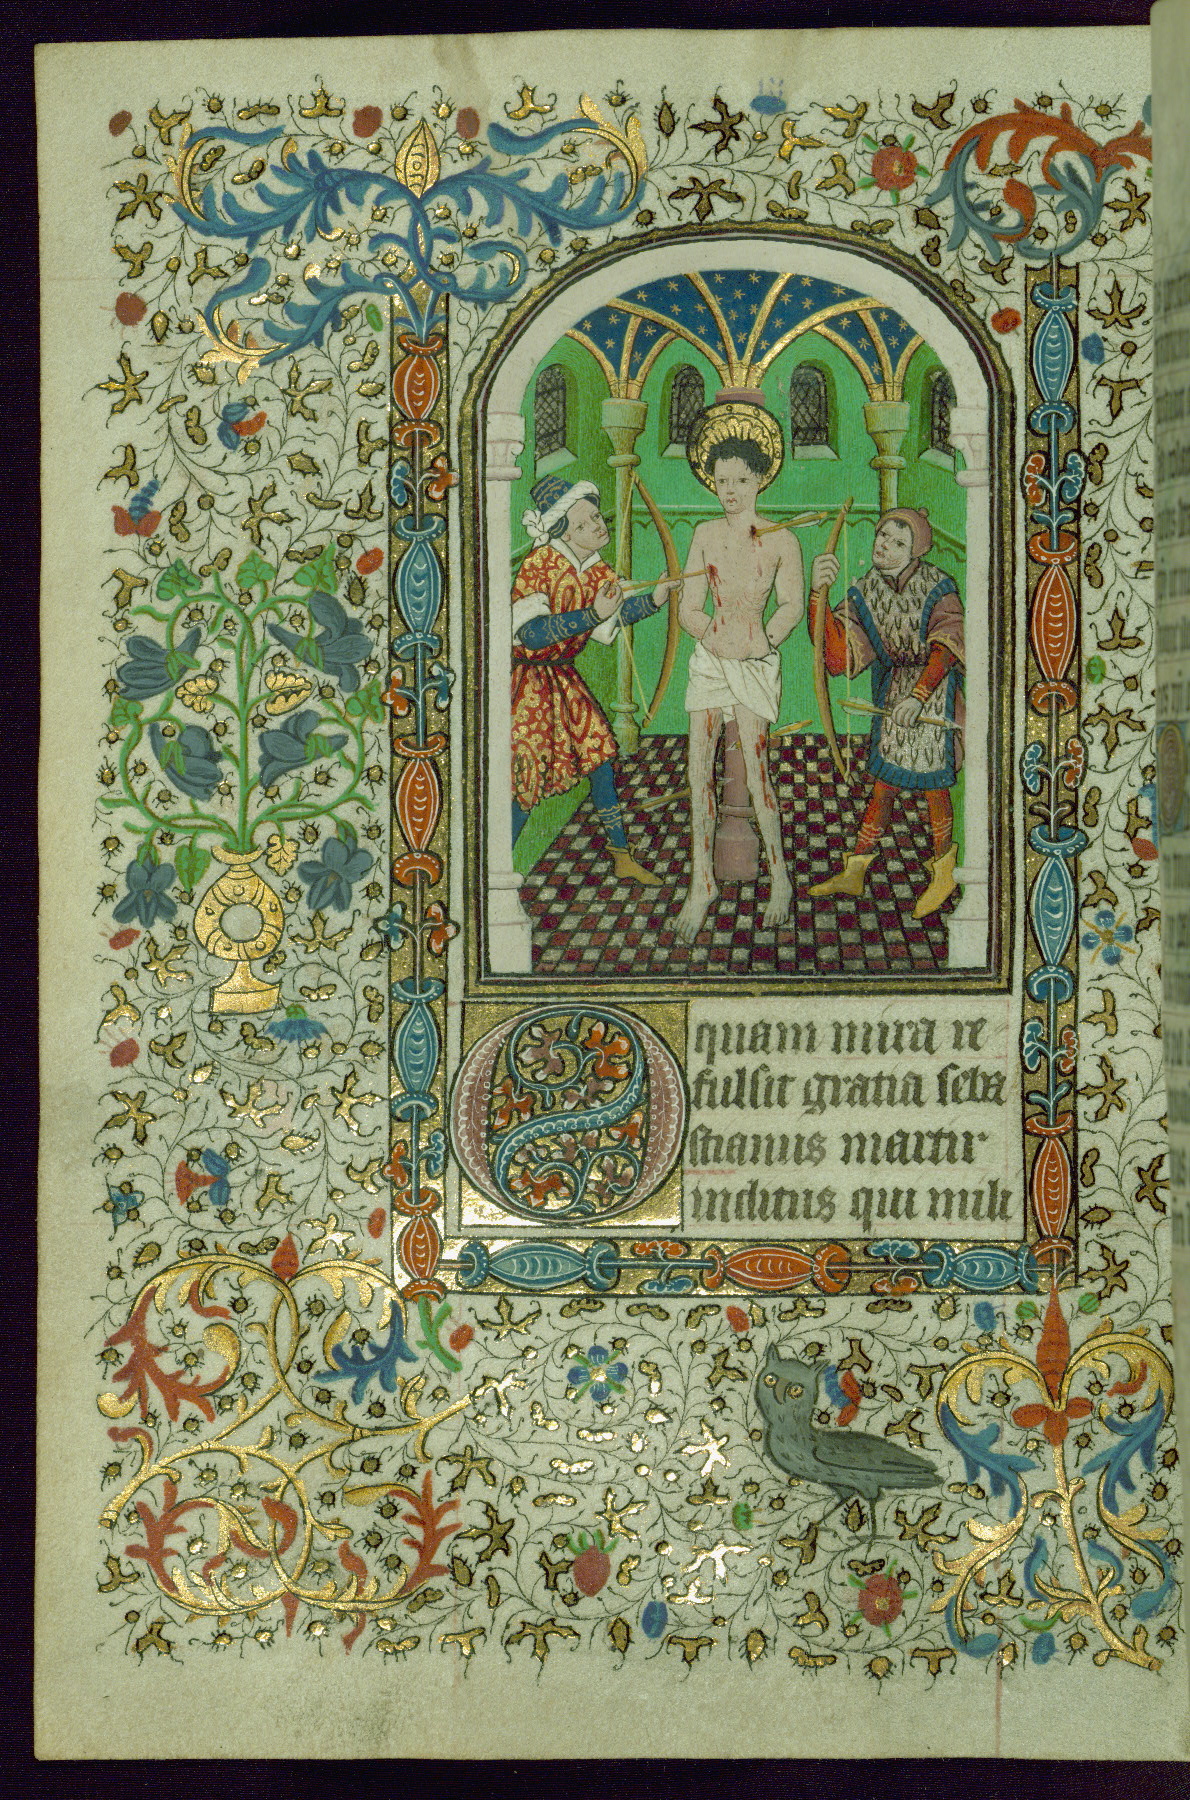 O quam mira re
fulsit gratia seba
stianus martir
inclitus qui mili